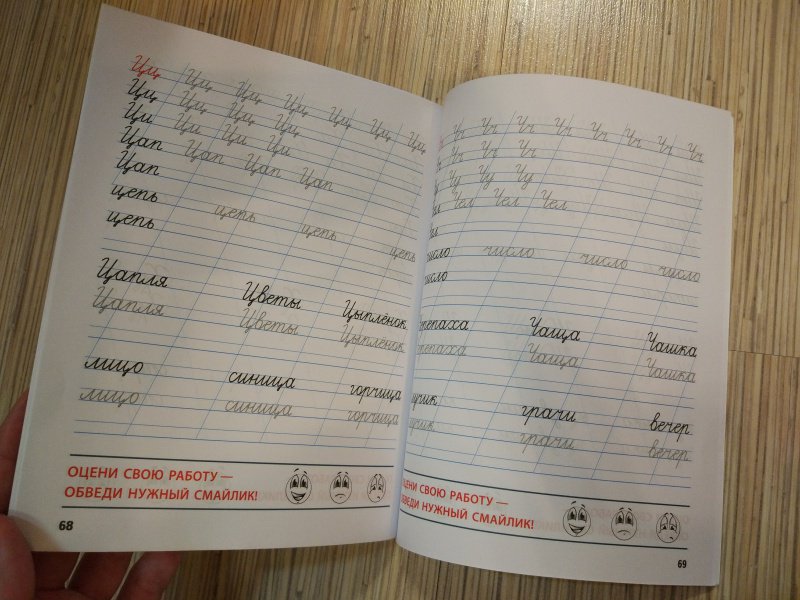 Цц Цц Цц Цц Цц Цц Цц
Цц Цц Цц Цц
Ци Ци Ци Ци
Цап Цап Цап Цап
Цап
цепь
цепь цепь цепь
цепь
Цапля Цветы Цыплёнок
Цапля Цветы Цыплёнок
лицо синица горчица
лицо синица горчица
ОЦЕНИ СВОЮ РАБОТУ —
ОБВЕДИ НУЖНЫЙ СМАЙЛИК!
68
Чч Чч Чч Чч Чч Чч Чч
Чч Чч Чч
Чу Чу Чу
Чел Чел Чел
число число число
Чаща Чашка
Чаща Чашка
грачи вечер
грачи вечер
СВОЮ РАБОТУ —
НУЖНЫЙ СМАЙЛИК!
69